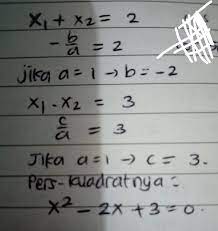 x₁ + x₂ = 2
-b/a = 2
jika a = 1 → b = -2
x₁ . x₂ = 3
c/a = 3
Jika a = 1 → c = 3.
Pers. kuadratnya =
x² - 2x + 3 = 0.